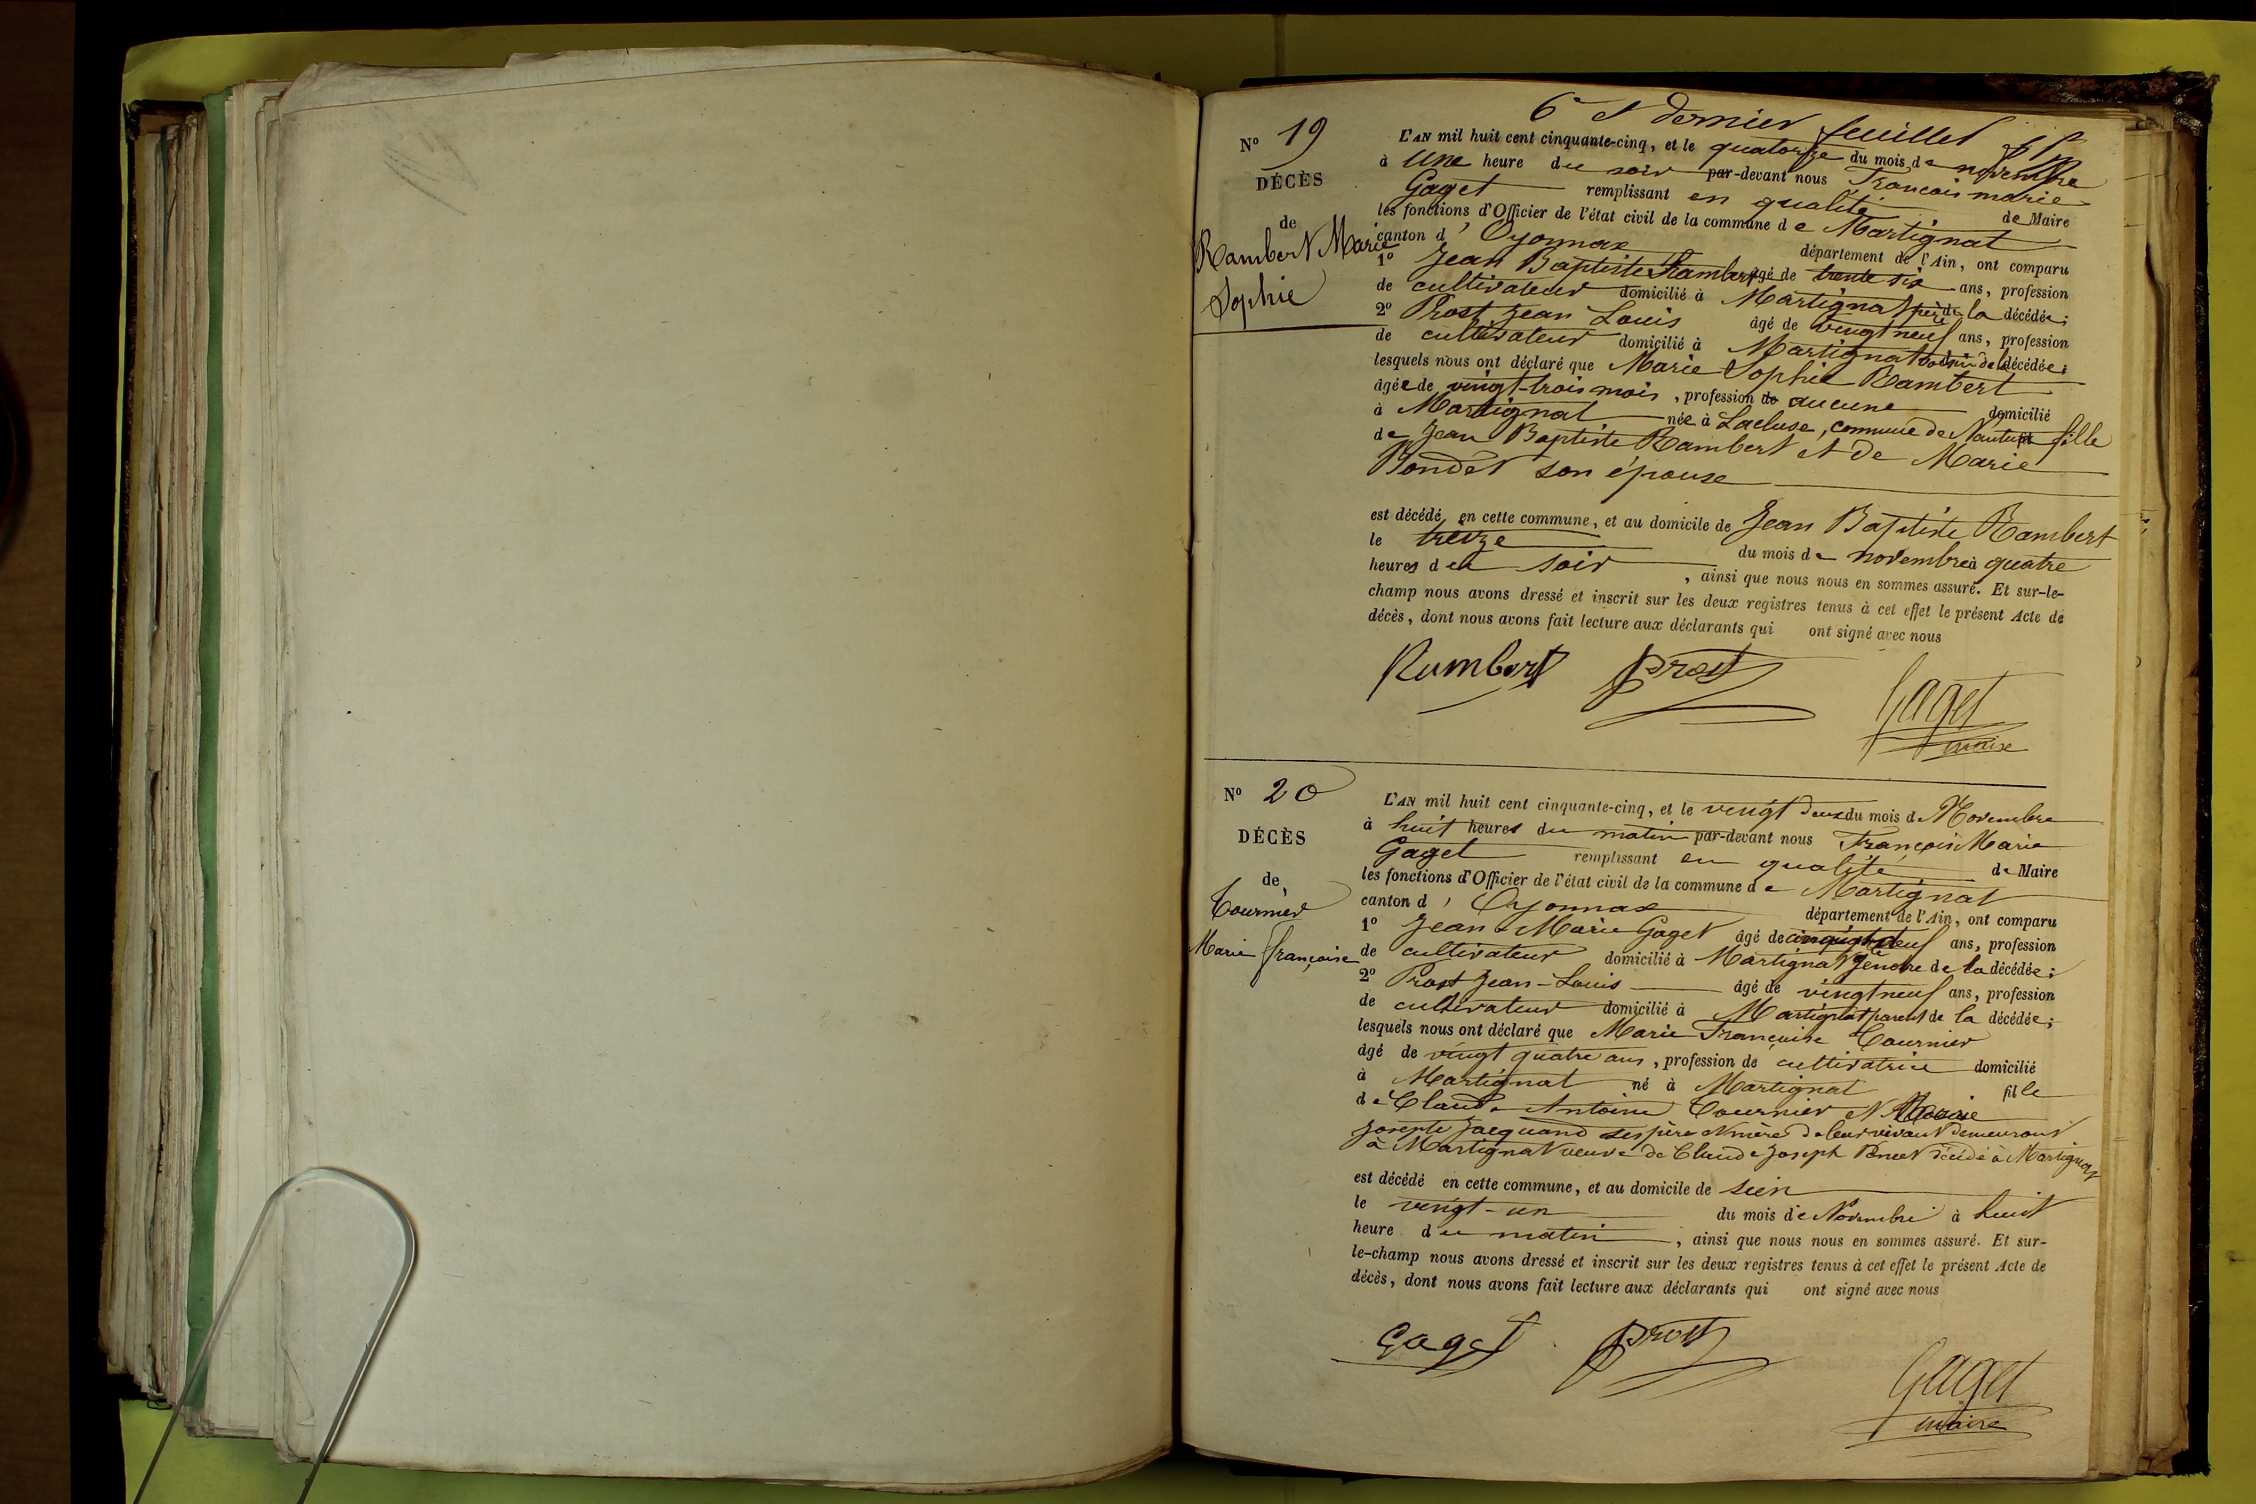 6e et dernier feuillet
No 19
DÉCÈS
de
Rambert Marie
Sophie
L'AN mil huit cent cinquante-cinq, et le quatorze du mois de novembre
à une heure du soir par-devant nous François marie
Gaget remplissant en qualité de Maire
les fonctions d'Officier de l'état civil de la commune de Martignat
canton d'Oyonnax département de l'Ain, ont comparu
1o Jean Baptiste Rambert âgé de trente six ans, profession
de cultivateur domicilié à Martignat père de la décédée;
2o Prost Jean Louis âgé de vingt neuf ans, profession
de cultivateur domicilié à Martignat voisin de la décédée;
lesquels nous ont déclaré que Marie Sophie Rambert
âgée de vingt-trois mois, profession de aucune domicilié
à Martignat née à Lacluse, commune de Nantua fille
de Jean Baptiste Rambert et de Marie
Bondet son épouse
est décédé en cette commune, et au domicile de Jean Baptiste Rambert
le treize du mois de novembre à quatre
heures du soir, ainsi que nous nous en sommes assuré. Et sur-le-
champ nous avons dressé et inscrit sur les deux registres tenus à cet effet le présent Acte de
décès, dont nous avons fait lecture aux déclarants qui ont signé avec nous
Rambert Prost
Gaget
maire
No 20
DÉCÈS
de
Tournier
Marie françoise
L'AN mil huit cent cinquante-cinq, et le vingt deux du mois de Novembre
à huit heures du matin par-devant nous François Marie
Gaget remplissant en qualité de Maire
les fonctions d'Officier de l'état civil de la commune de Martignat
canton d'Oyonnax département de l'Ain, ont comparu
1o Jean Marie Gaget âgé de neuf ans, profession
de cultivateur domicilié à Martignat gendre de la décédée;
2o Prost Jean-Louis âgé de vingt neuf ans, profession
de cultivateur domicilié à Martignat parent de la décédée;
lesquels nous ont déclaré que Marie Françoise Tournier
âgé de vingt quatre ans, profession de cultivatrice domicilié
à Martignat né à Martignat fille
de Claude Antoine Tournier et Marie
Josephte Jacquand ses père et mère de leur vivant demeurant
à Martignat veuve de Claude Joseph Poncet décédé à Martignat
est décédé en cette commune, et au domicile de sien
le vingt-un du mois de Novembre à huit
heure du matin, ainsi que nous nous en sommes assuré. Et sur-
le-champ nous avons dressé et inscrit sur les deux registres tenus à cet effet le présent Acte de
décès, dont nous avons fait lecture aux déclarants qui ont signé avec nous
Gaget Prost
Gaget
maire